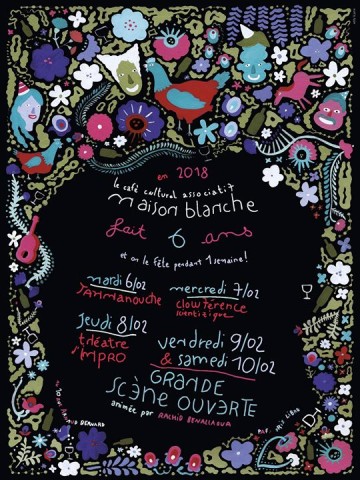 en 2018
le café culturel associatif
maison blanche
fait 6 ans
et on le fête pendant 1 semaine!
mardi 6/02
J'ammanouche
mercredi 7/02
clowférence
scientifique
jeudi 8/02
théâtre
d'impro
vendredi 9/02
& samedi 10/02
GRANDE
scène ouverte
animée par RACHID BENALLAOUA